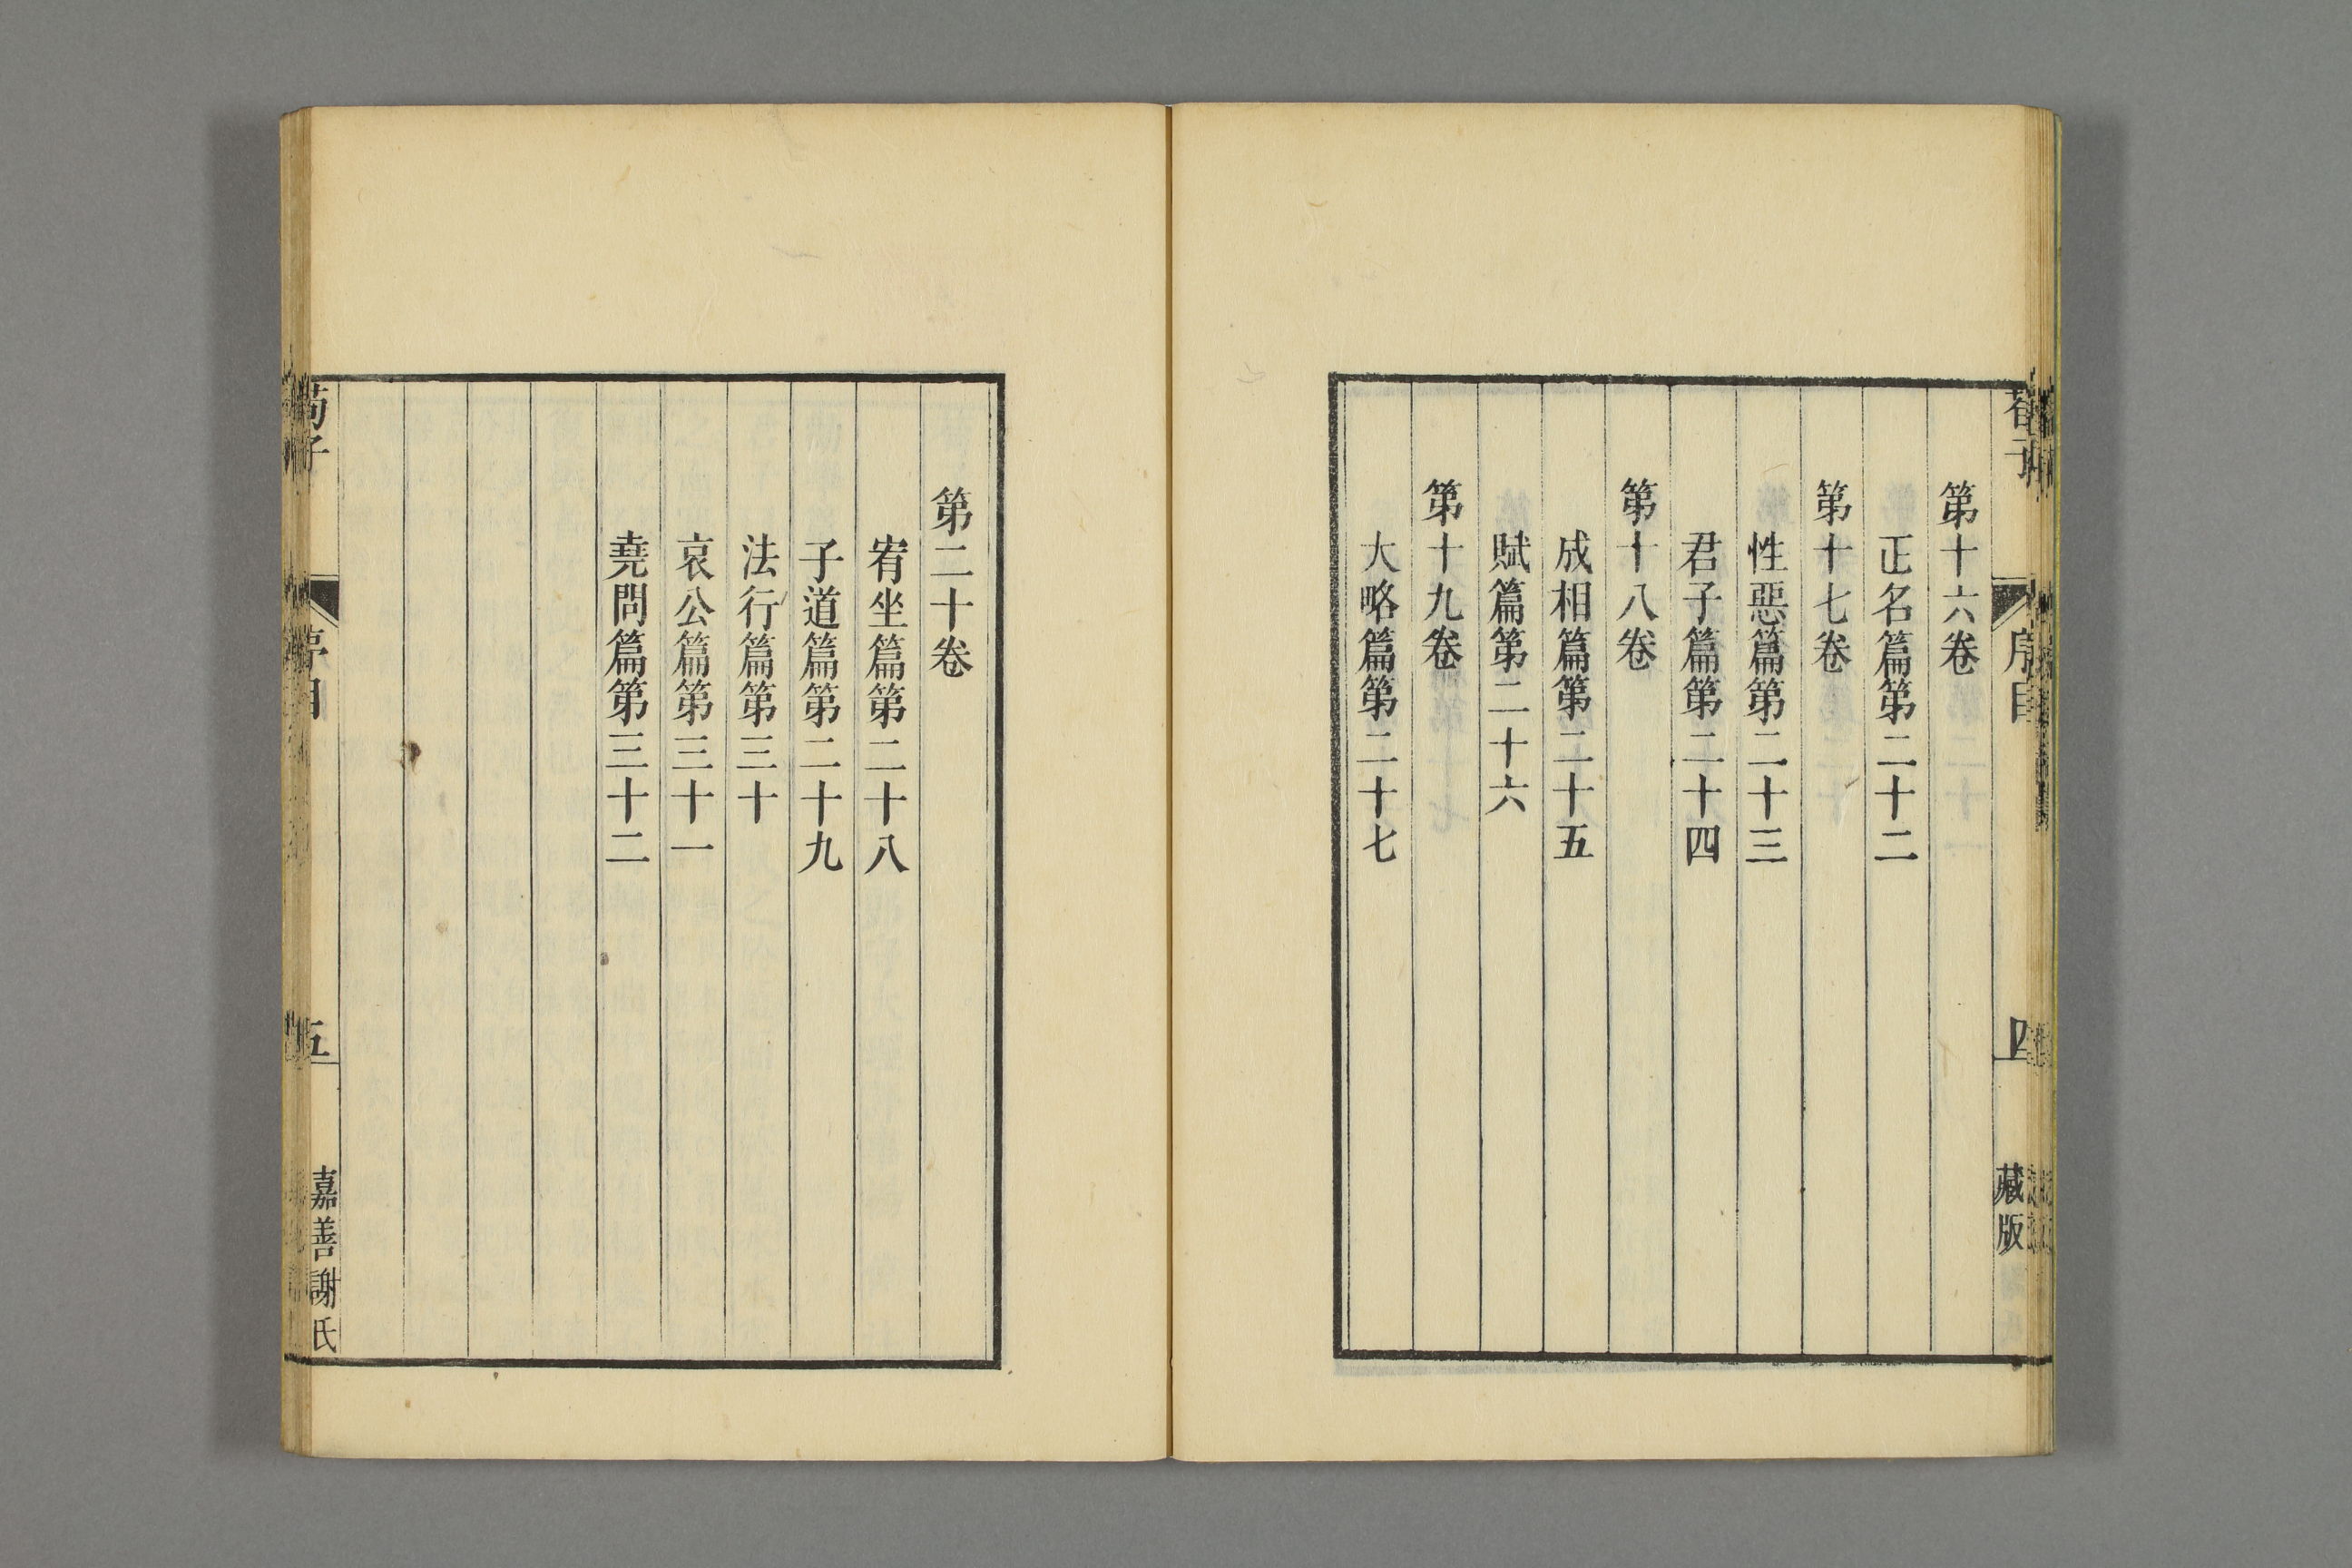 荀子
序目
四
藏版
第十六卷
正名篇第二十二
第十七卷
性惡篇第二十三
君子篇第二十四
第十八卷
成相篇第二十五
賦篇第二十六
第十九卷
大略篇第二十七
第二十卷
宥坐篇第二十八
子道篇第二十九
法行篇第三十
哀公篇第三十一
堯問篇第三十二
荀子
序目
五
嘉善謝氏